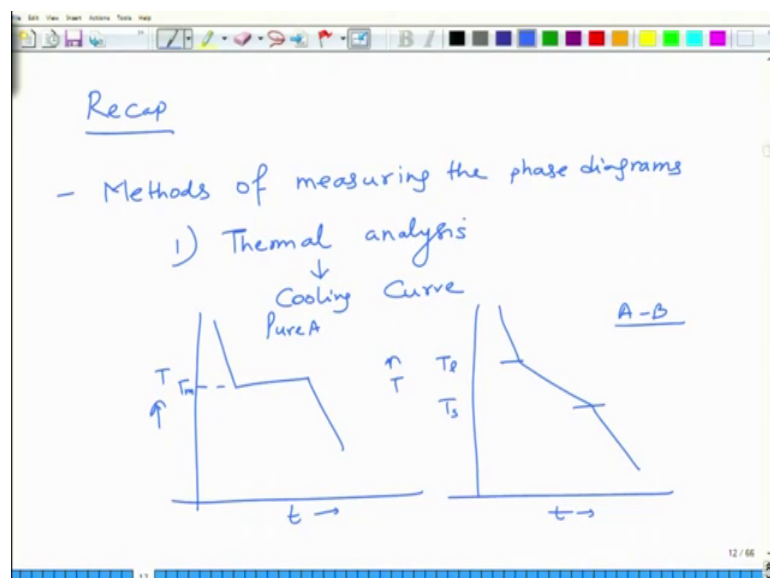 File Edit View Insert Actions Tools Help
B I
Recap
- Methods of measuring the phase diagrams
1) Thermal analysis
↓
Cooling Curve
Pure A
A-B
T
Tm
↑
t →
↑
T
Tl
Ts
t →
12 / 66